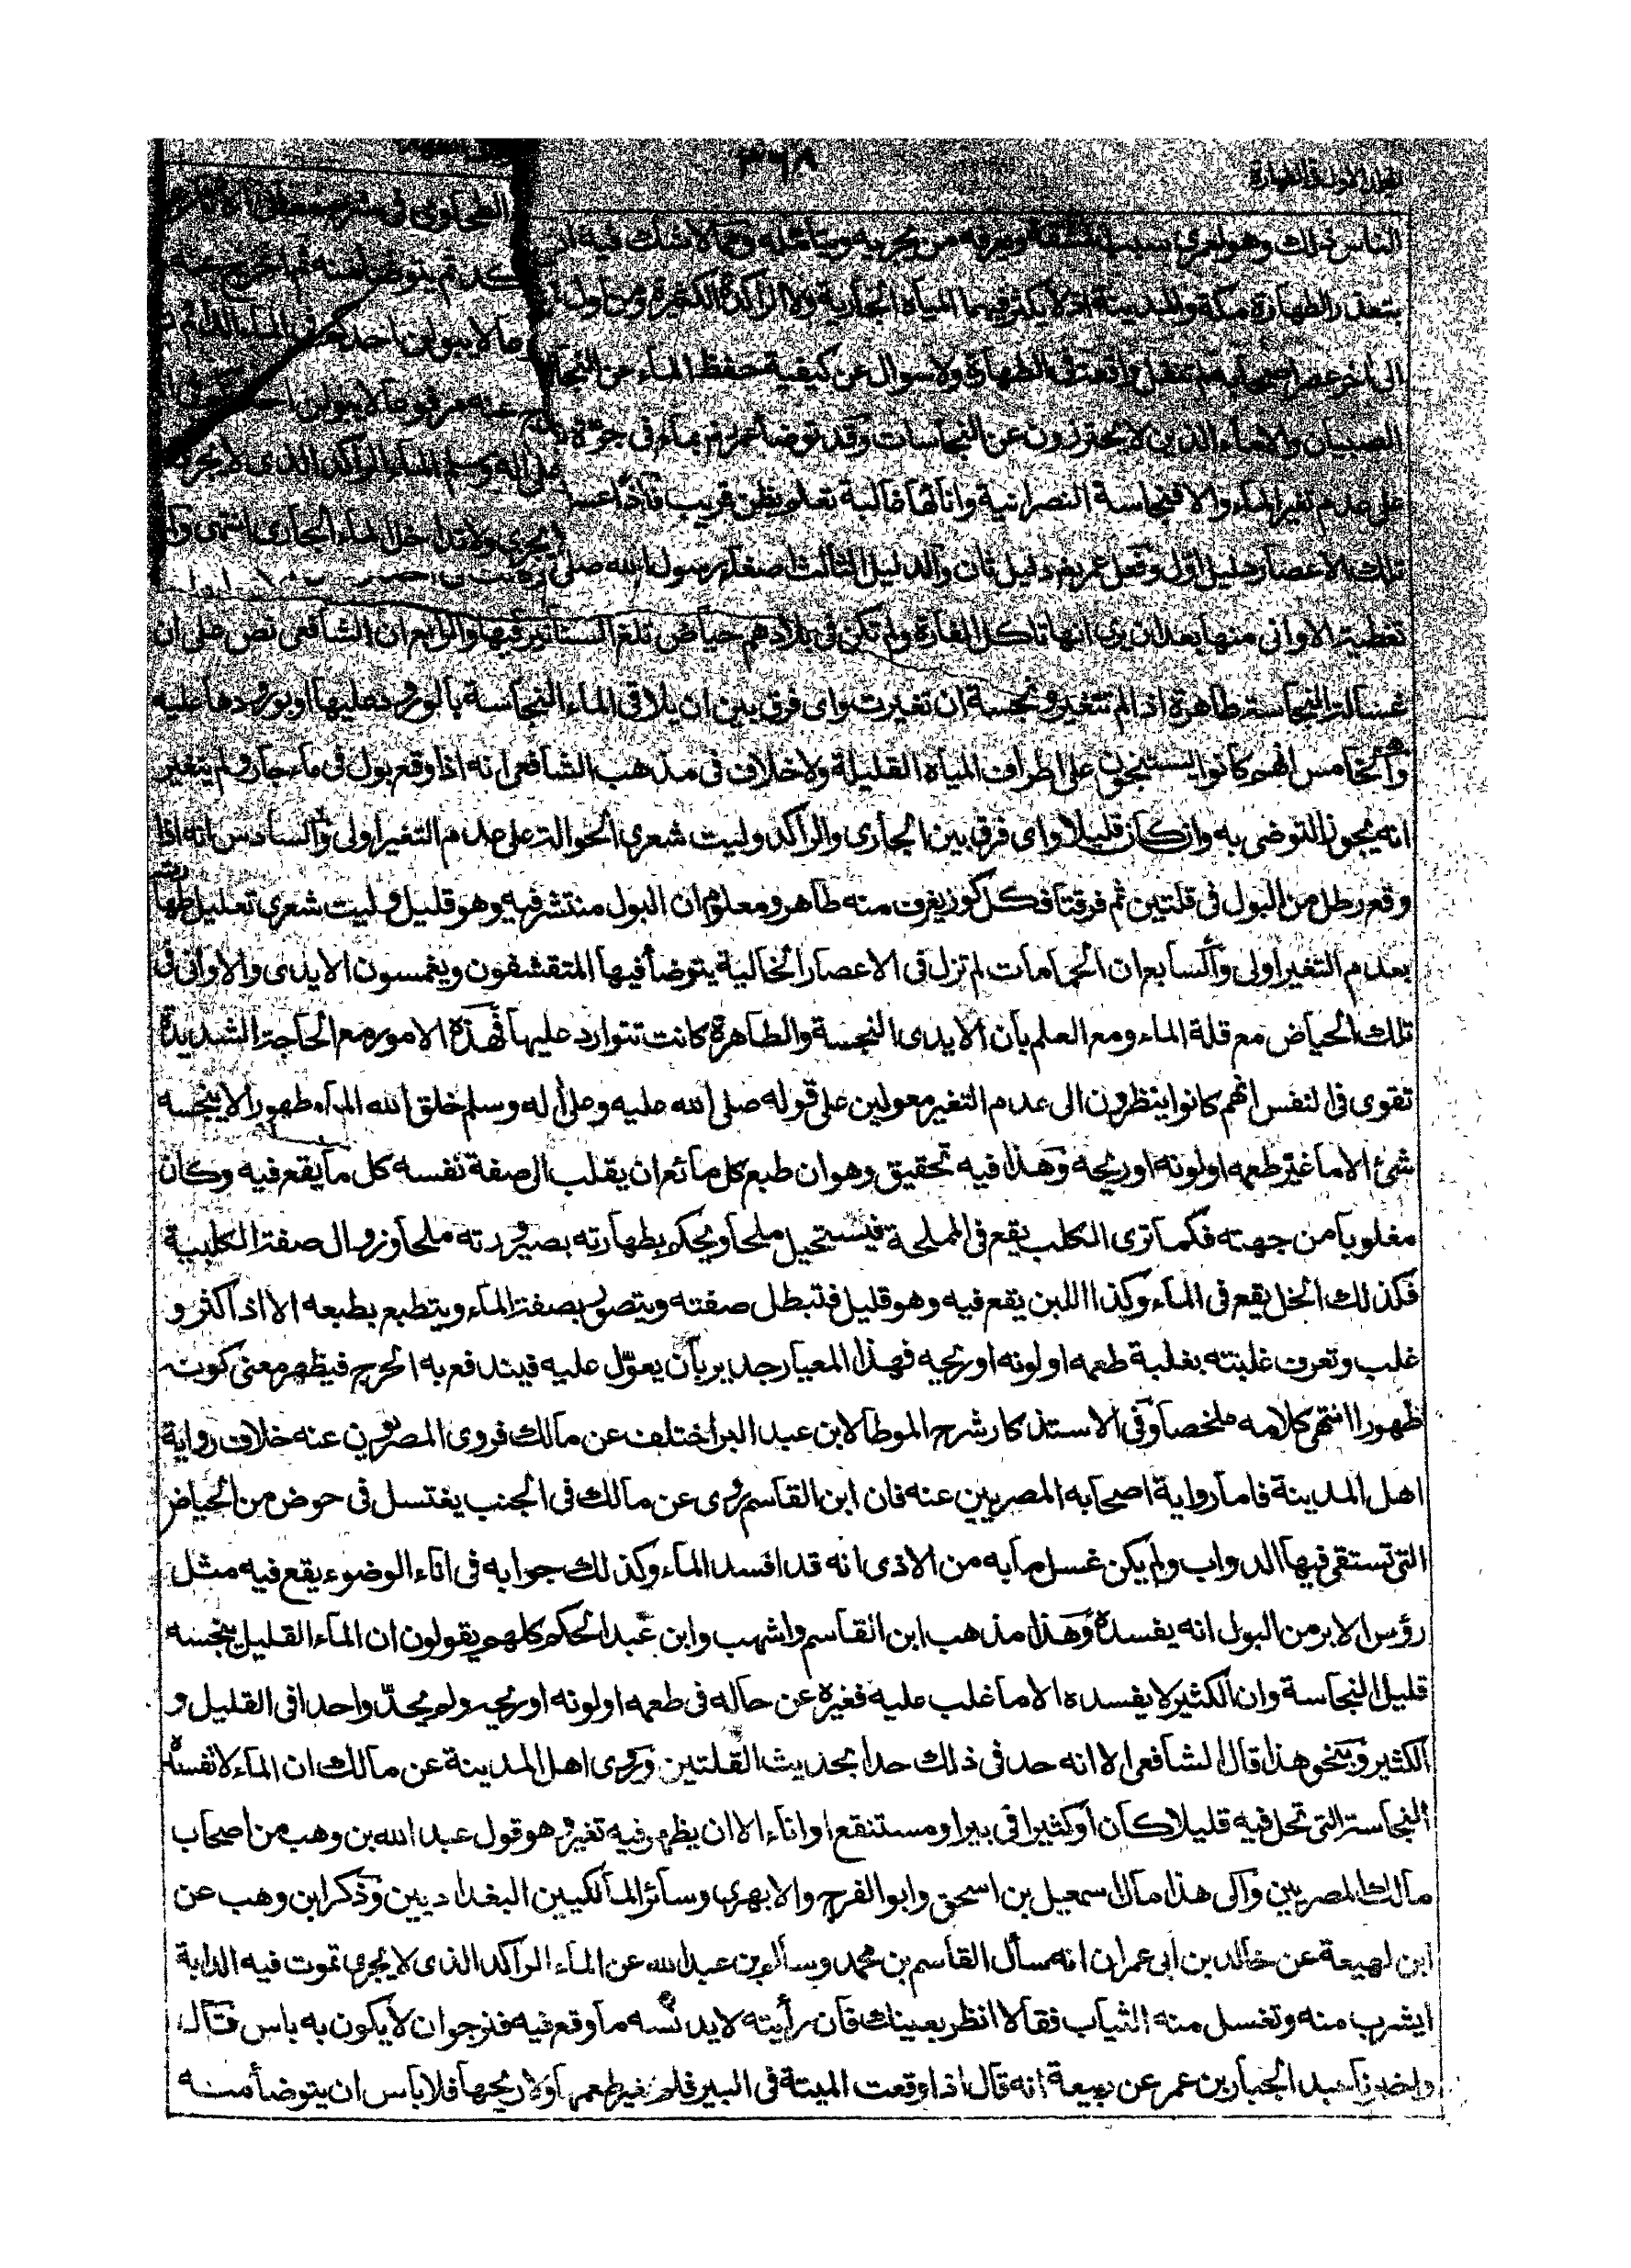 الجزء الاول فى الطهارة
٣٦٨
الناس ذلك وهو لعمرى سبب المشقة ويعرفه من يجربه ويتأمله ومما لا شك فيه ان
يتعذر الطهارة مكة والمدينة اذ لا يكثر فيهما المياه الجارية ولا الراكدة الكثيرة ومن اول
الى اخر عصر اصحابه لم تنقل واقعة فى الطهارة ولا سوال عن كيفية حفظ الماء عن النجا
الصبيان والاماء الذين لا يحترزون عن النجاسات وقد توضأ عمر بماء فى جرة
على عدم تغير الماء والا فنجاسة النصرانية وانائها غالبة تعلم بظن قريب فاذا عسر
تلك الاعصار دليل اول وفعل عمر رض دليل ثان والدليل الثالث اصغاء رسول الله صلى
تغطية الاوانى منها بعد ان يرى انها تاكل الفارة ولم تكن فى بلادهم حياض تلغ السنانير فيها والرابع ان الشافعى نص على ان
غسالة النجاسة طاهرة اذا لم تتغير ونجسة ان تغيرت واى فرق بين ان يلاقى الماء النجاسة بالورود عليها او بورودها عليه
والخامس انهم كانوا يستنجون على اطراف المياه القليلة ولا خلاف فى مذهب الشافعى انه اذا وقع بول فى ماء جار ولم يتغير
انه يجوز التوضى به وان كان قليلا واى فرق بين الجارى والراكد وليت شعرى الحوالة على عدم التغير اولى والسادس انه اذا
وقع رطل من البول فى قلتين ثم فرقتا فكل كوز يغرف منه طاهر ومعلوم ان البول منتشر فيه وهو قليل وليت شعرى تعليل طهارته
بعدم التغير اولى والسابع ان الحمامات لم تزل فى الاعصار الخالية يتوضأ فيها المتقشفون ويغمسون الايدى والاوانى فى
تلك الحياض مع قلة الماء ومع العلم بان الايدى النجسة والطاهرة كانت تتوارد عليها فهذه الامور مع الحاجة الشديدة
تقوى فى النفس انهم كانوا ينظرون الى عدم التغير معولين على قوله صلى الله عليه وعلى اله وسلم خلق الله الماء طهورا لا ينجسه
شئ الا ما غير طعمه او لونه او ريحه وهذا فيه تحقيق وهو ان طبع كل مائع ان يقلب الى صفة نفسه كل ما يقع فيه وكان
مغلوبا من جهته فكما ترى الكلب يقع فى المملحة فيستحيل ملحا ويحكم بطهارته بصيرورته ملحا وزوال صفة الكلبية
فكذلك الخل يقع فى الماء وكذا اللبن يقع فيه وهو قليل فتبطل صفته ويتصور بصفة الماء ويتطبع بطبعه الا اذا كثر و
غلب وتعرف غلبته بغلبة طعمه او لونه او ريحه فهذا المعيار جدير بان يعول عليه فيندفع به الحرج فيظهر معنى كونه
طهورا انتهى كلامه ملخصا وفى الاستذكار شرح الموطا لابن عبد البر اختلف عن مالك فروى المصريون عنه خلاف رواية
اهل المدينة فاما رواية اصحابه المصريين عنه فان ابن القاسم روى عن مالك فى الجنب يغتسل فى حوض من الحياض
التى تستقى فيها الدواب ولم يكن غسل ما به من الاذى انه قد افسد الماء وكذلك جوابه فى اناء الوضوء يقع فيه مثل
رؤس الابر من البول انه يفسده وهذا مذهب ابن القاسم واشهب وابن عبد الحكم كلهم يقولون ان الماء القليل ينجسه
قليل النجاسة وان الكثير لا يفسده الا ما غلب عليه فغيره عن حاله فى طعمه او لونه او ريحه ولم يحد واحدا فى القليل و
الكثير وبنحو هذا قال الشافعى الا انه حد فى ذلك حدا بحديث القلتين وروى اهل المدينة عن مالك ان الماء لا تفسده
النجاسة التى تحل فيه قليلا كان او كثيرا فى بير او مستنقع او اناء الا ان يظهر فيه تغير وهو قول عبد الله بن وهب من اصحاب
مالك المصريين والى هذا مال اسمعيل بن اسحق وابو الفرج والابهرى وسائر المالكيين البغداديين وذكر ابن وهب عن
ابن لهيعة عن خالد بن ابى عمران انه سأل القاسم بن محمد وسالم بن عبد الله عن الماء الراكد الذى لا يجرى تموت فيه الدابة
ايشرب منه وتغسل منه الثياب فقالا انظر بعينك فان رأيته لا يدنسه ما وقع فيه فنرجو ان لا يكون به باس قال
واخبرنا عبد الجبار بن عمر عن ربيعة انه قال اذا وقعت الميتة فى البير فلم يغير طعمها ولا ريحها فلا بأس ان يتوضأ منه
الطحاوى فى
ثم يتوضأ منه
لا يبولن احدكم فى الماء
عنه مرفوعا لا يبولن احدكم فى
عليه وسلم الماء الراكد الذى لا يجرى
يجرى ولا تداخل الماء الجارى انتهى